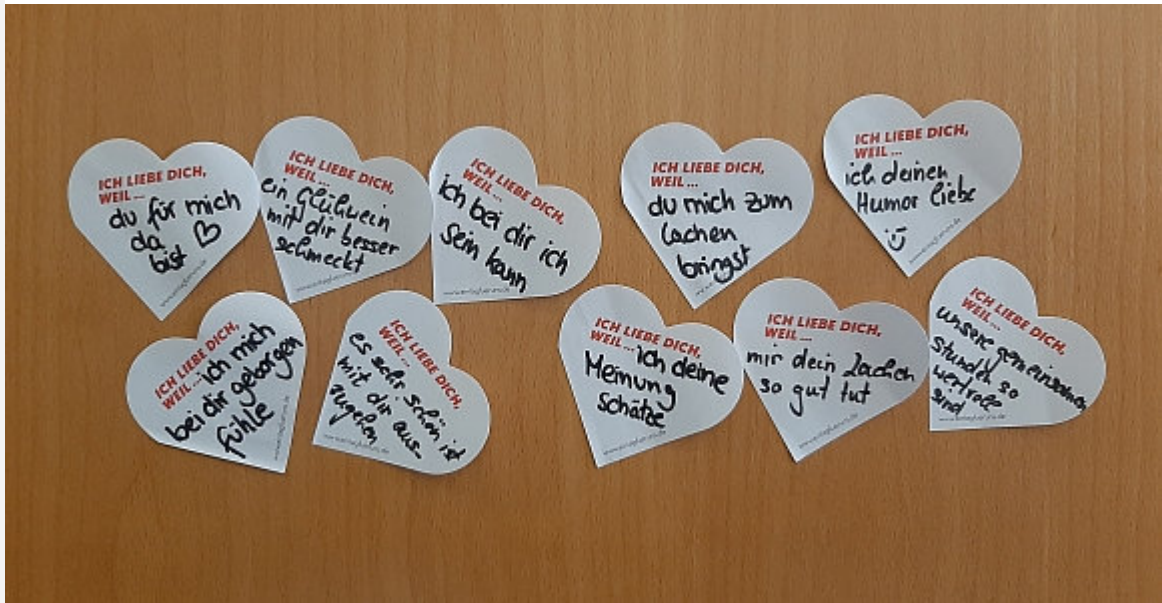 ICH LIEBE DICH,
WEIL ...
du für mich
da
bist
ICH LIEBE DICH,
WEIL ...
ein Glühwein
mit dir besser
schmeckt
ICH LIEBE DICH,
WEIL ...
ich bei dir ich
sein kann
ICH LIEBE DICH,
WEIL ...
du mich zum
lachen
bringst
ICH LIEBE DICH,
WEIL ...
ich deinen
Humor liebe
ICH LIEBE DICH,
WEIL ... ich mich
bei dir geborgen
fühle
ICH LIEBE DICH,
WEIL ...
es sehr schön ist
mit dir aus-
zugehen
ICH LIEBE DICH,
WEIL ... ich deine
Meinung
schätze
ICH LIEBE DICH,
WEIL ...
mir dein Lachen
so gut tut
ICH LIEBE DICH,
WEIL ...
unsere gemeinsamen
Stunden so
wertvoll
sind